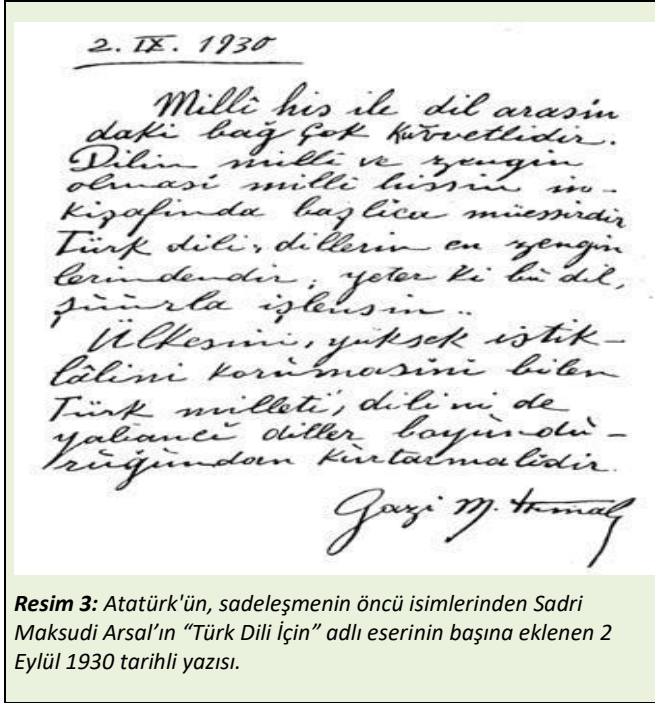 2. IX. 1930
Millî his ile dil arasın
daki bağ çok kuvvetlidir.
Dilin millî ve zengin
olması millî hissin in-
kişafında başlıca müessirdir
Türk dili, dillerin en zengin
lerindendir; yeter ki bu dil,
şuurla işlensin..
Ülkesini, yüksek istik-
lâlini korumasını bilen
Türk milleti, dilini de
yabancı diller boyundu-
ruğundan kurtarmalıdır.
Gazi M. Kemal
Resim 3: Atatürk'ün, sadeleşmenin öncü isimlerinden Sadri
Maksudi Arsal’ın “Türk Dili İçin” adlı eserinin başına eklenen 2
Eylül 1930 tarihli yazısı.